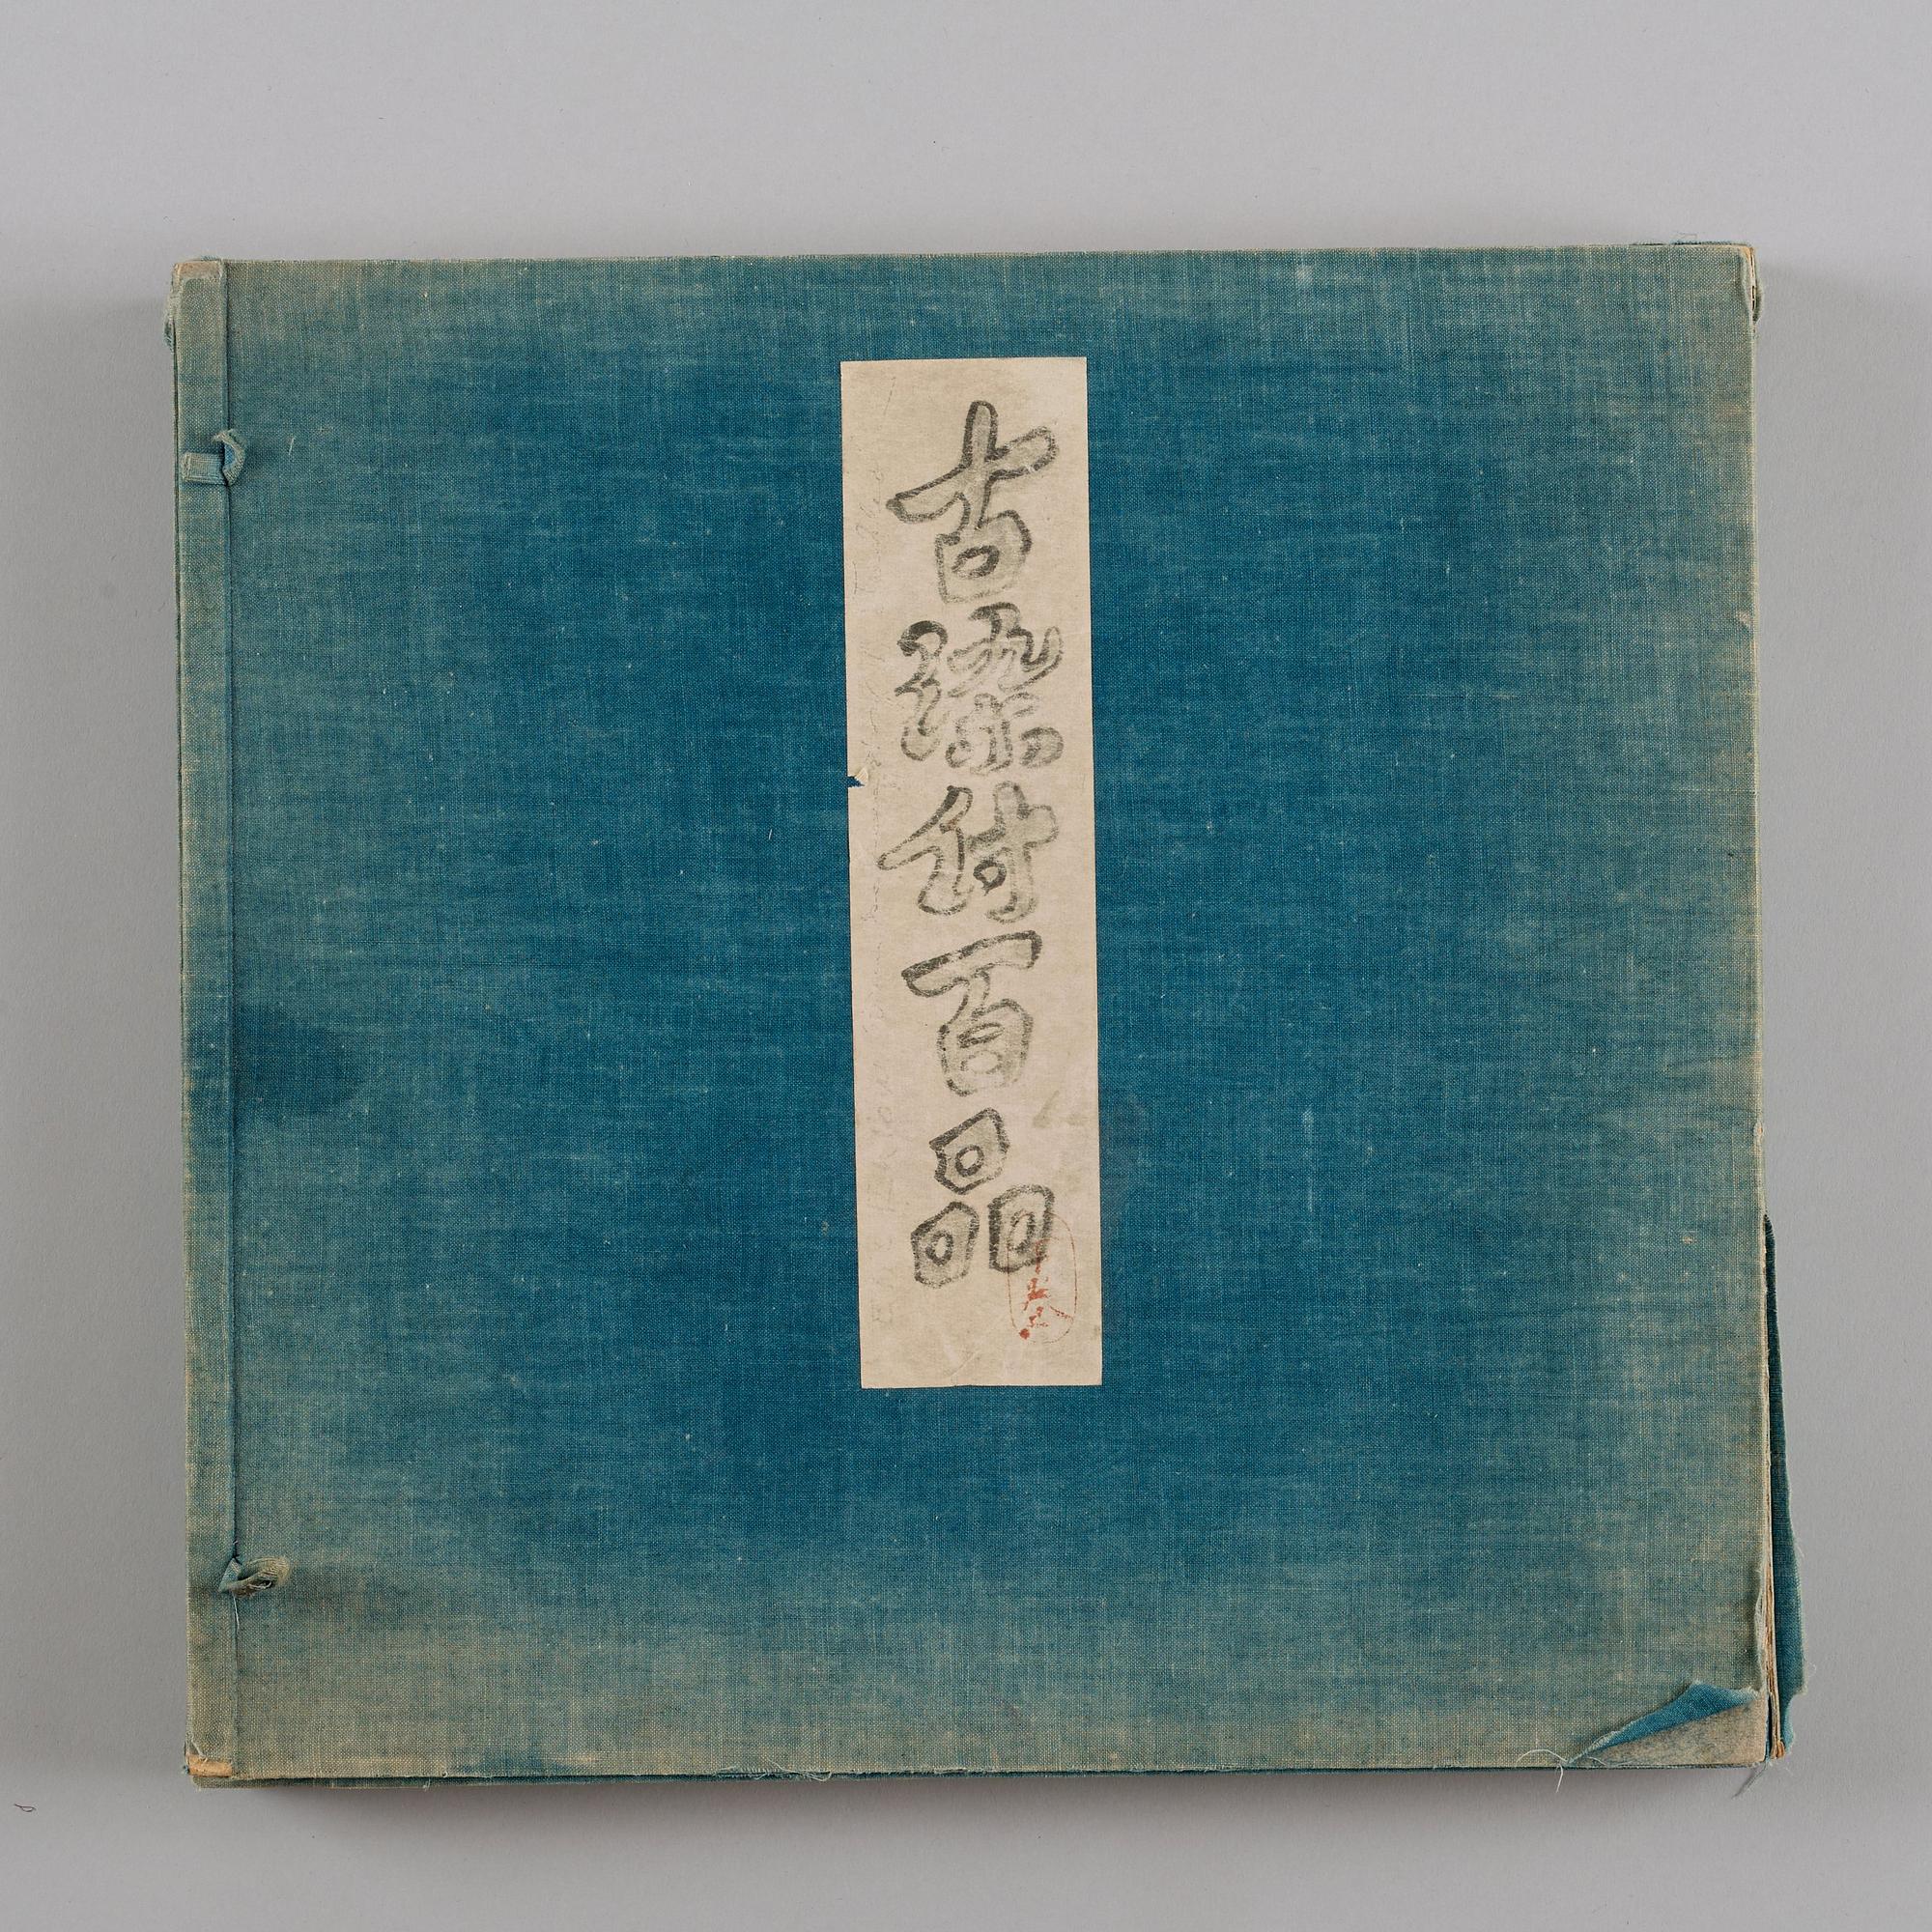 古染付百品